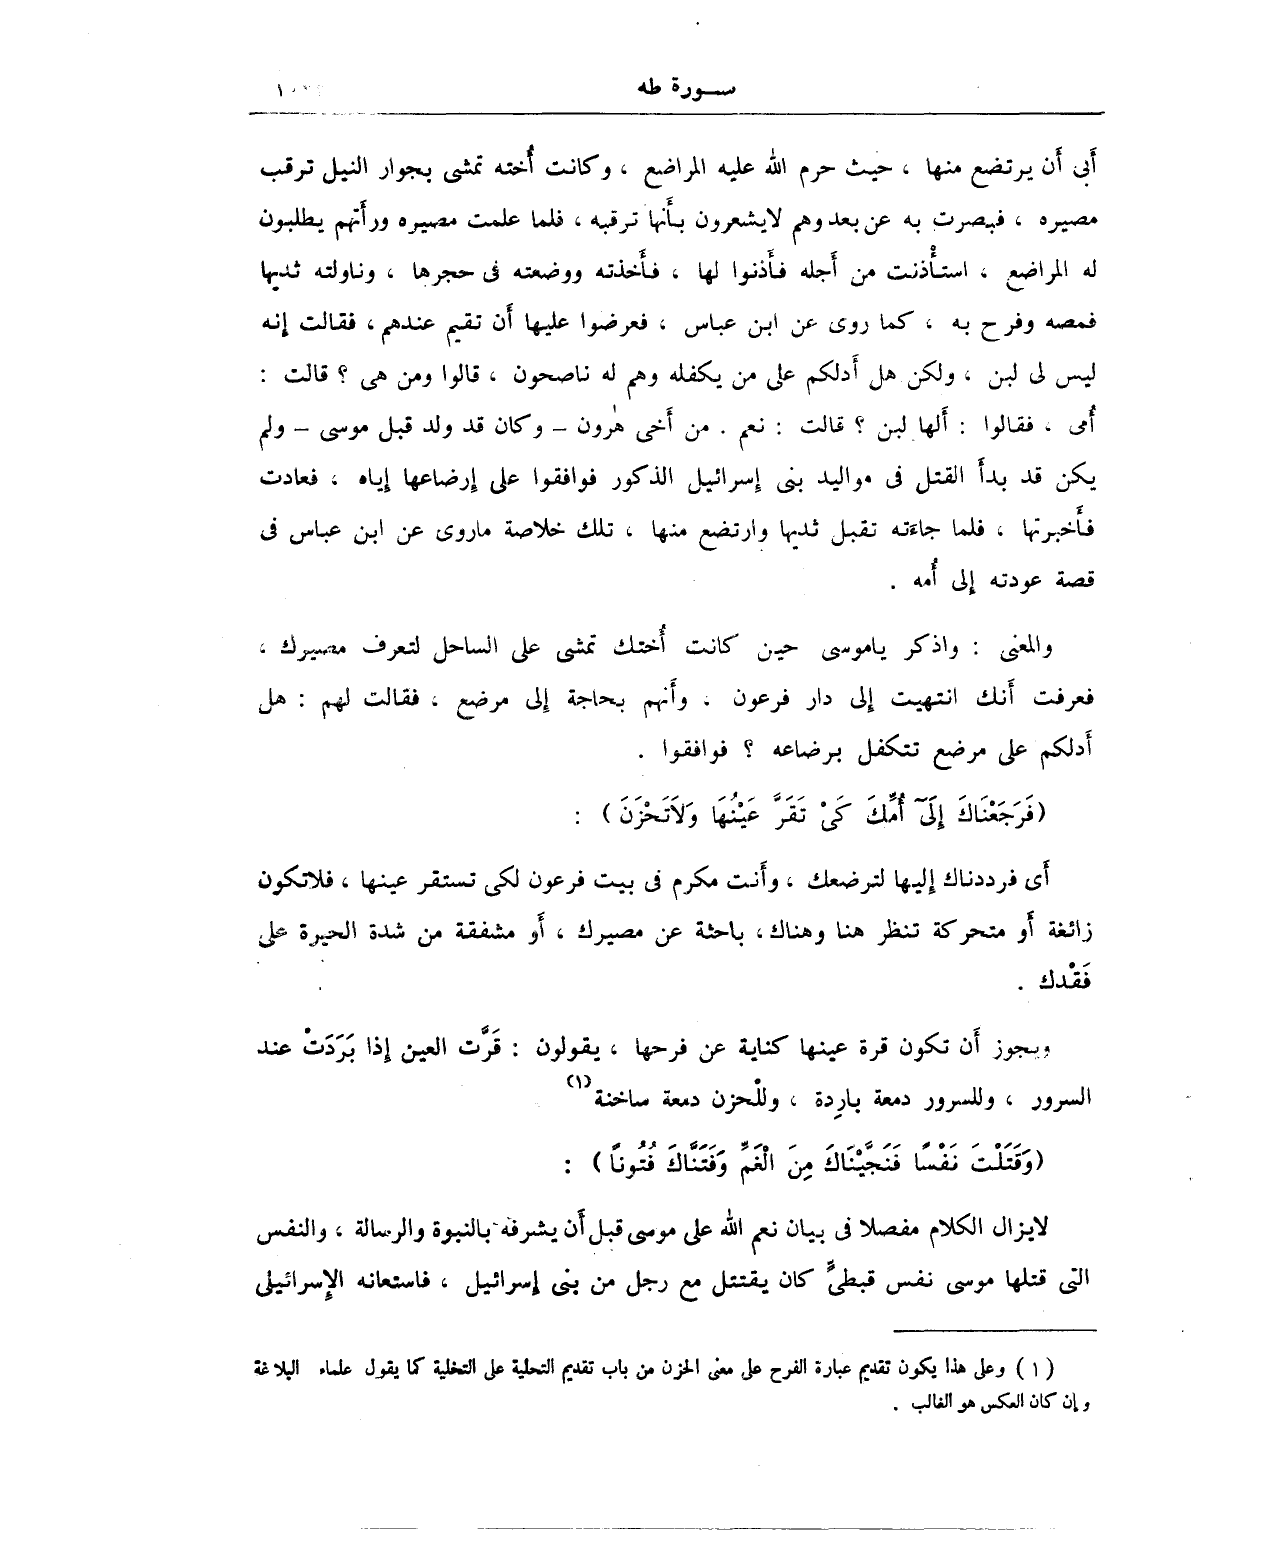 سورة طه
أَبى أَن يرتضع منها ، حيث حرم الله عليه المراضع ، وكانت أُخته تمشى بجوار النيل ترقب
مصيره ، فبصرت به عن بعد وهم لايشعرون بأَنها ترقبه ، فلما علمت مصيره ورأَتهم يطلبون
له المراضع ، استأْذنت من أَجله فأَذنوا لها ، فأَخذته ووضعته فى حجرها ، وناولته ثديها
فمصه وفرح به ، كما روى عن ابن عباس ، فعرضوا عليها أَن تقيم عندهم ، فقالت إنه
ليس لى لبن ، ولكن هل أَدلكم على من يكفله وهم له ناصحون ، قالوا ومن هى ؟ قالت :
أُمى ، فقالوا : أَلها لبن ؟ قالت : نعم . من أَخى هٰرون – وكان قد ولد قبل موسى – ولم
يكن قد بدأَ القتل فى مواليد بنى إسرائيل الذكور فوافقوا على إرضاعها إياه ، فعادت
فأَخبرتها ، فلما جاءَته تقبل ثديها وارتضع منها ، تلك خلاصة ماروى عن ابن عباس فى
قصة عودته إلى أُمه .
والمعنى : واذكر ياموسى حين كانت أُختك تمشى على الساحل لتعرف مصيرك ،
فعرفت أَنك انتهيت إلى دار فرعون ، وأَنهم بحاجة إلى مرضع ، فقالت لهم : هل
أَدلكم على مرضع تتكفل برضاعه ؟ فوافقوا .
(فَرَجَعْنَاكَ إِلَىٓ أُمِّكَ كَىْ تَقَرَّ عَيْنُهَا وَلَاتَحْزَنَ) :
أَى فرددناك إليها لترضعك ، وأَنت مكرم فى بيت فرعون لكى تستقر عينها ، فلاتكون
زائغة أَو متحركة تنظر هنا وهناك، باحثة عن مصيرك ، أَو مشفقة من شدة الحيرة على
فَقْدك .
ويجوز أَن تكون قرة عينها كناية عن فرحها ، يقولون : قَرَّت العين إذا بَرَدَتْ عند
السرور ، وللسرور دمعة بارِدة ، وللْحزن دمعة ساخنة (١)
(وَقَتَلْتَ نَفْسًا فَنَجَّيْنَاكَ مِنَ الْغَمِّ وَفَتَنَّاكَ فُتُونًا) :
لايزال الكلام مفصلا فى بيان نعم الله على موسى قبل أَن يشرفه بالنبوة والرسالة ، والنفس
التى قتلها موسى نفس قبطىٍّ كان يقتتل مع رجل من بنى إسرائيل ، فاستعانه الإسرائيلى
(١) وعلى هذا يكون تقديم عبارة الفرح على معنى الحزن من باب تقديم التحلية على التخلية كما يقول علماء البلاغة
وإن كان العكس هو الغالب .